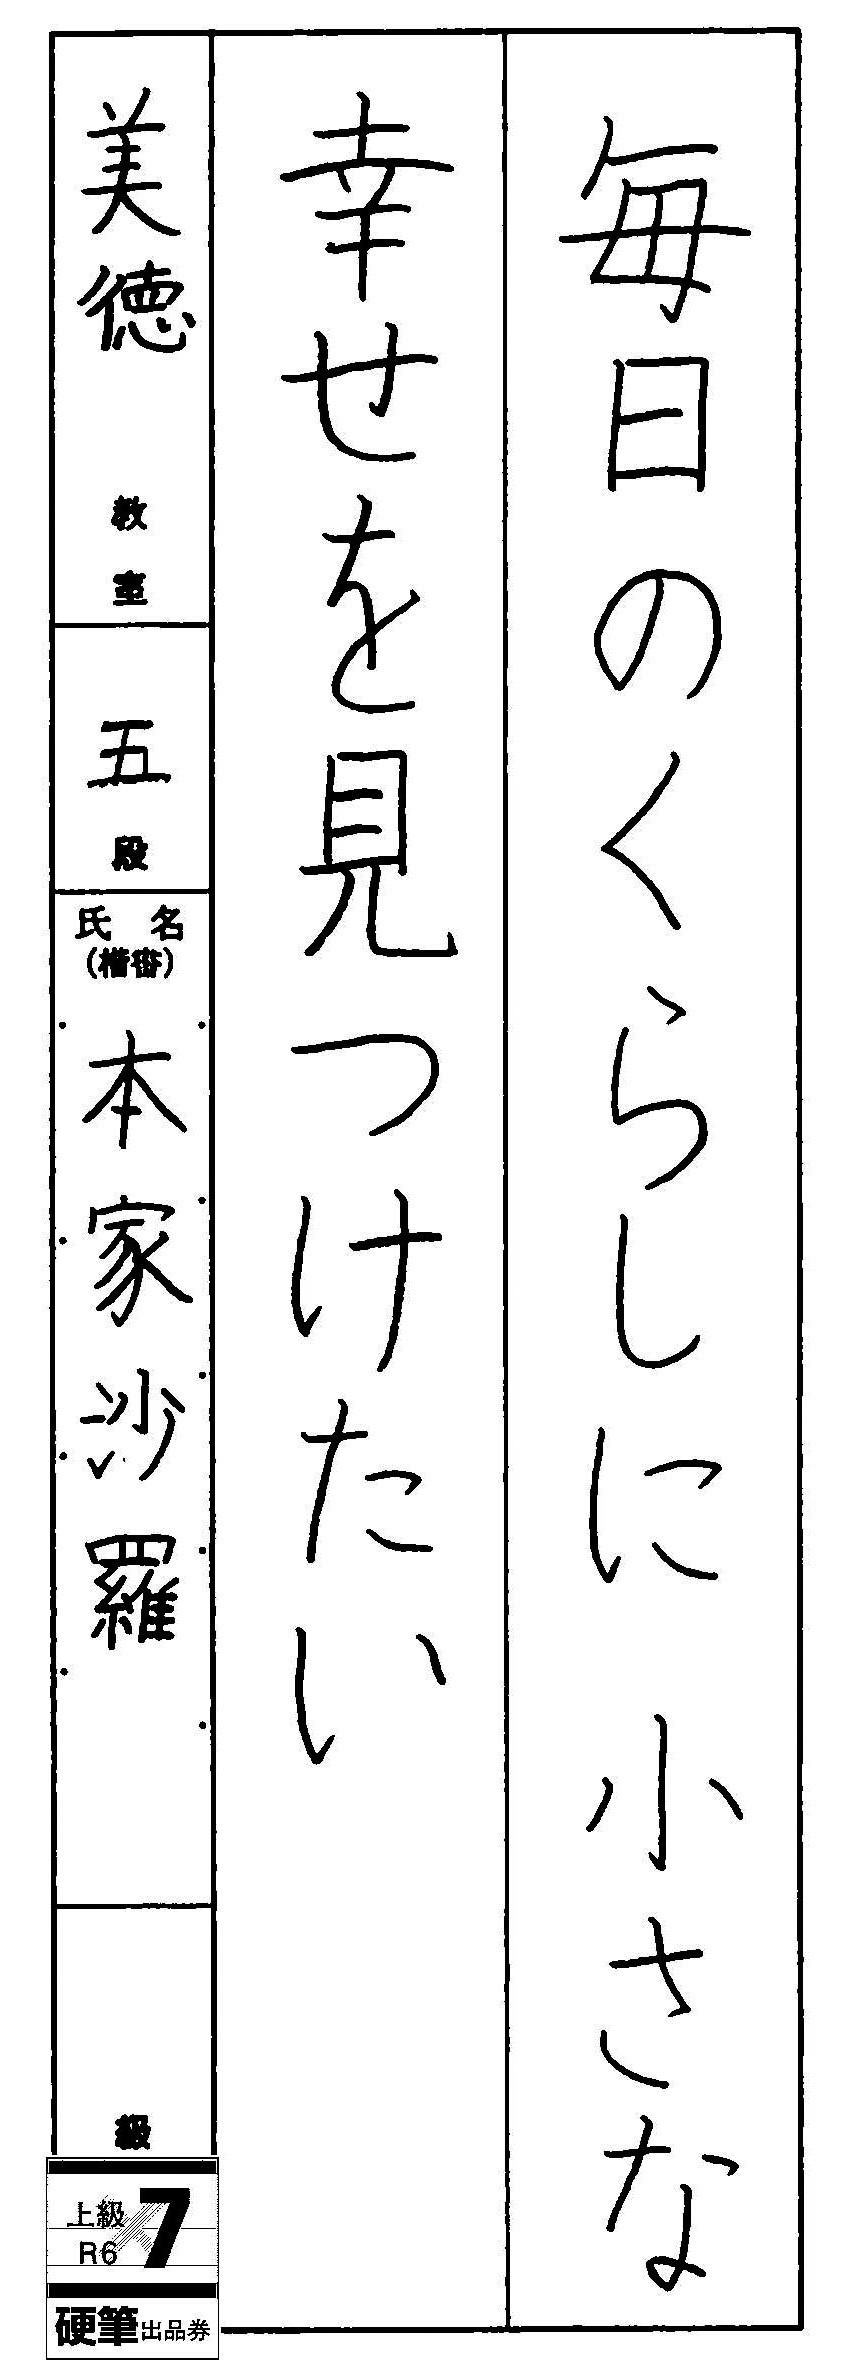 毎日のくらしに小さな
幸せを見つけたい
美徳 教室
五 段
氏名
(楷書)
本家沙羅
級
上級
R6
7
硬筆出品券